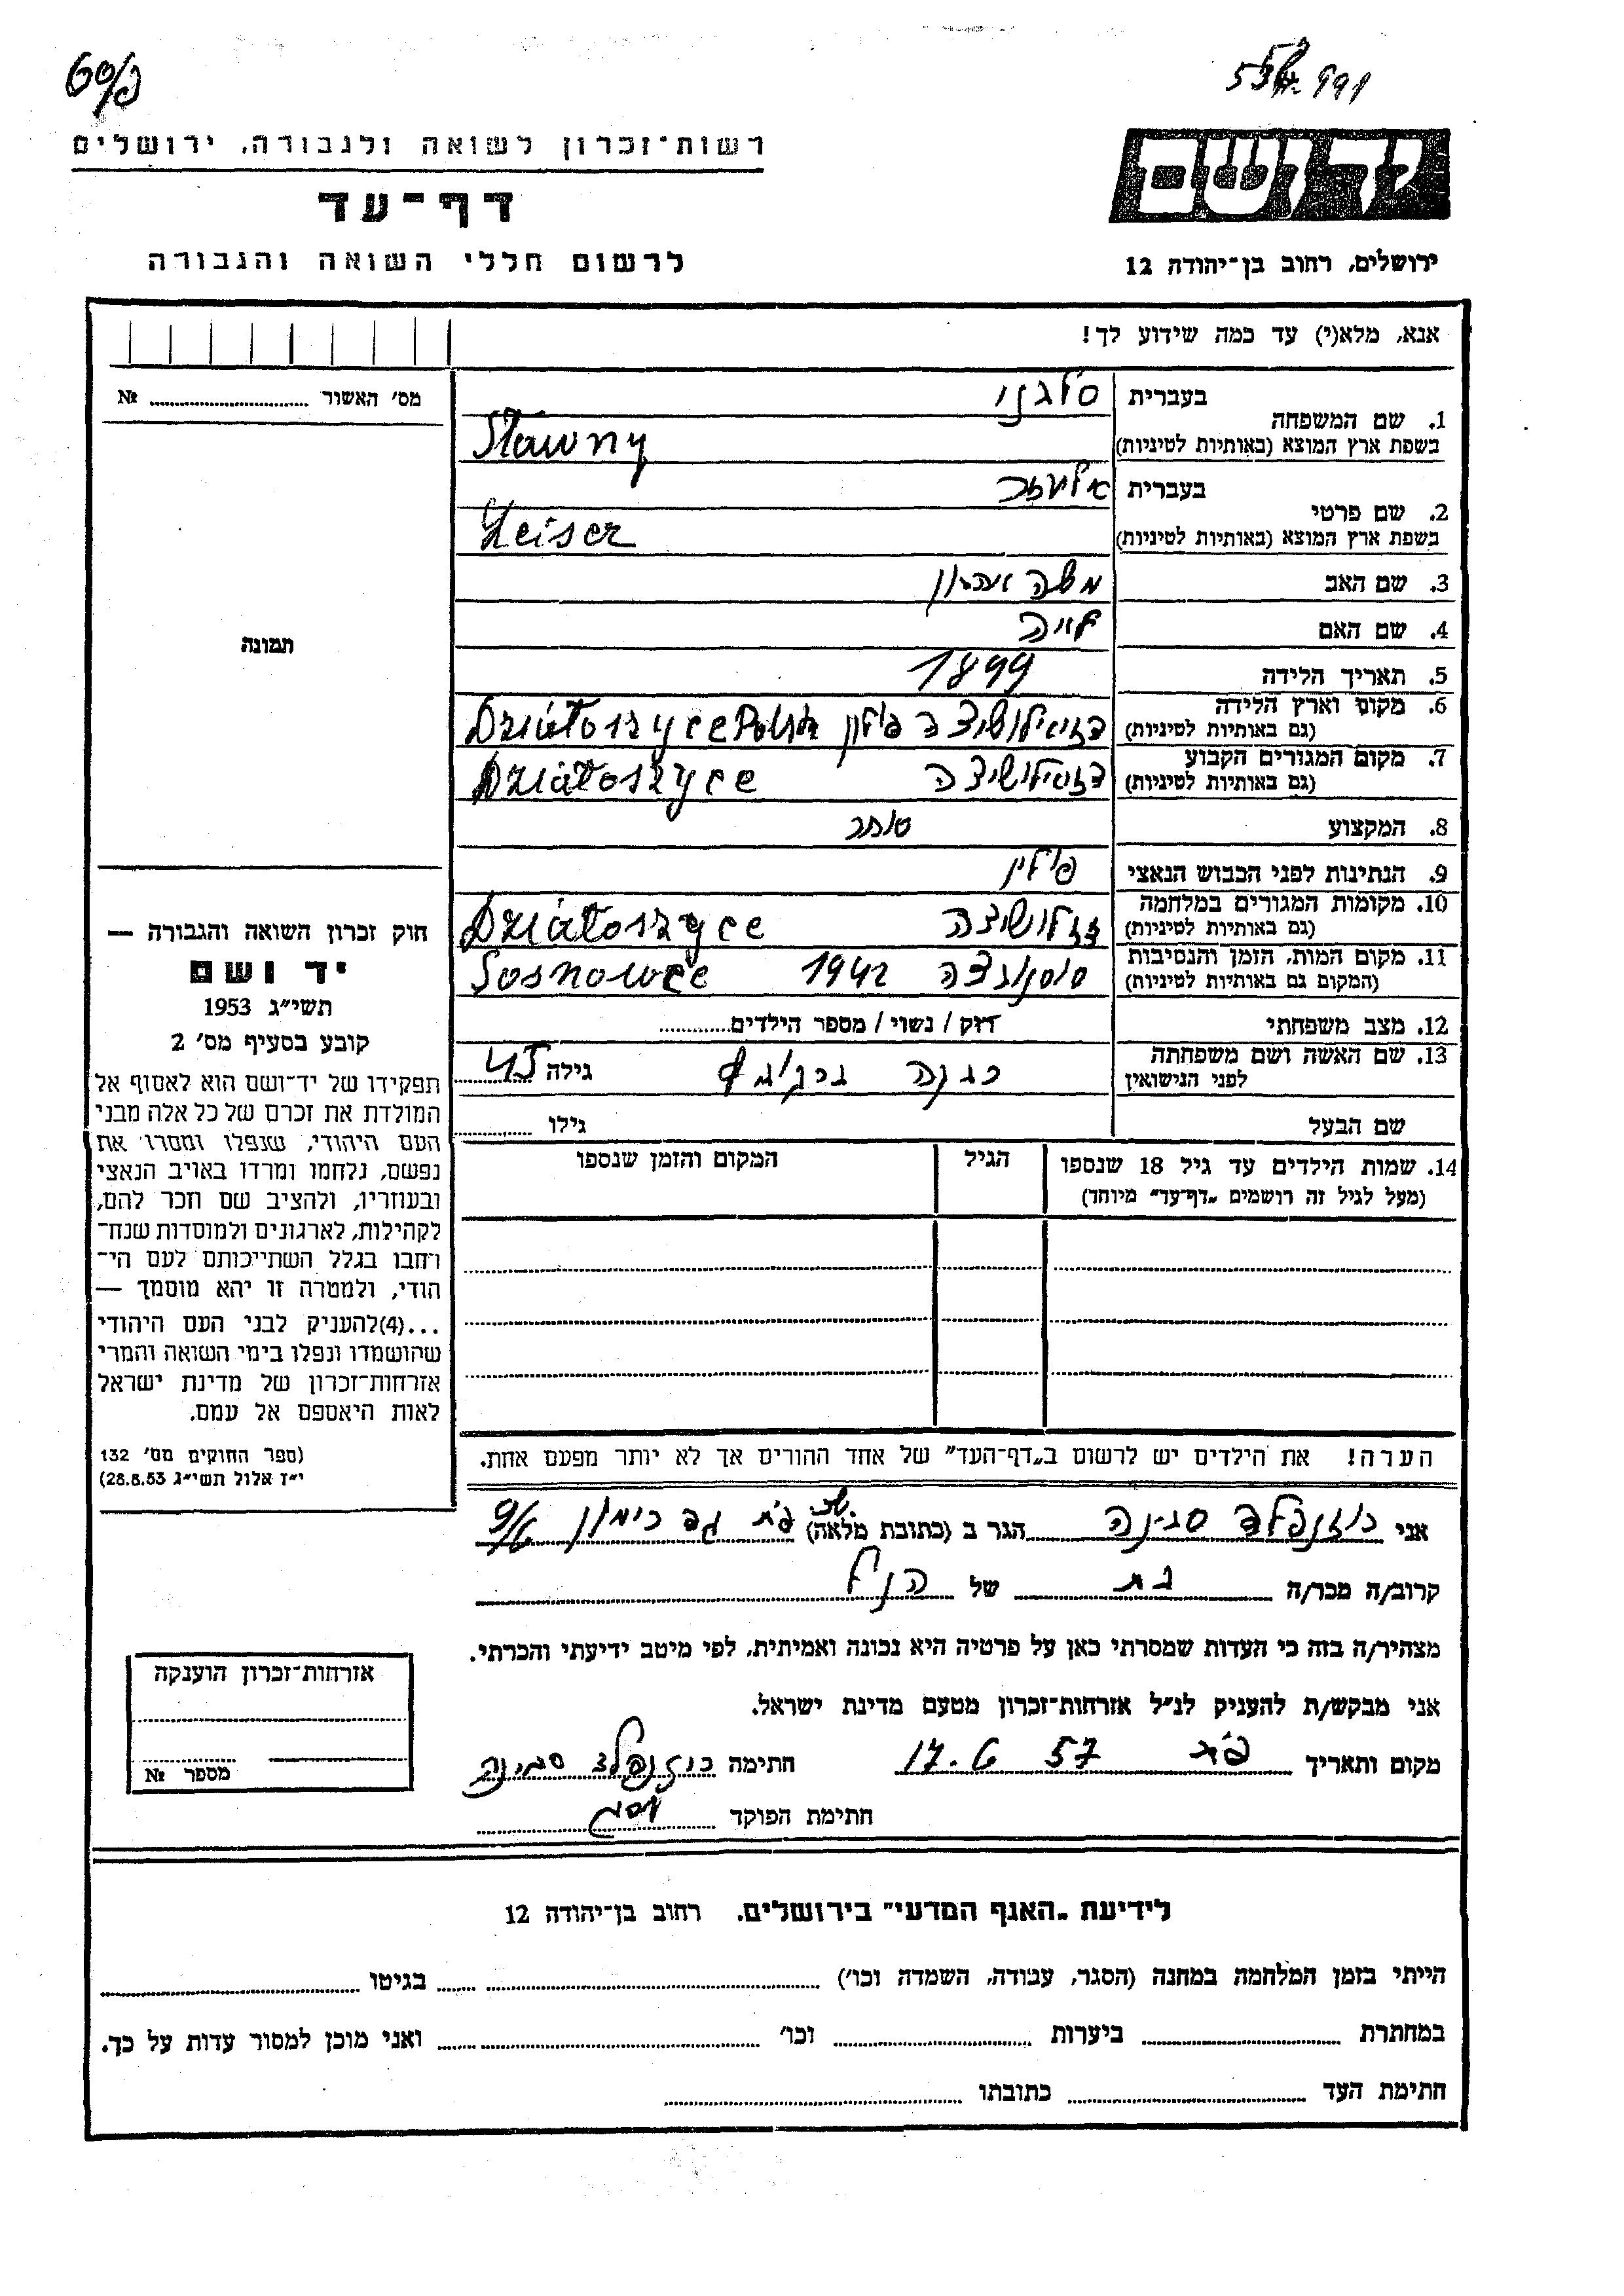 רשות־זכרון לשואה ולגבורה, ירושלים
דף־עד
לרשום חללי השואה והגבורה
ידושם
ירושלים, רחוב בן־יהודה 12
אנא, מלא(י) עד כמה שידוע לך!
מס׳ האשור № 
1. שם המשפחה
בעברית
בשפת ארץ המוצא (באותיות לטיניות) Stawny
2. שם פרטי
בעברית אליעזר
בשפת ארץ המוצא (באותיות לטיניות) Leiser
3. שם האב משה אהרון
4. שם האם לאה
5. תאריך הלידה 1899
6. מקום וארץ הלידה
(גם באותיות לטיניות) פולין Dziatoszyce Polska
7. מקום המגורים הקבוע
(גם באותיות לטיניות) Dziatoszyce
8. המקצוע סוחר
9. הנתינות לפני הכבוש הנאצי פולין
10. מקומות המגורים במלחמה
(גם באותיות לטיניות) Dziatoszyce
11. מקום המות, הזמן והנסיבות
(המקום גם באותיות לטיניות) 1942 Sosnowce
12. מצב משפחתי רוק / נשוי / מספר הילדים
13. שם האשה ושם משפחתה
לפני הנישואין גילה 45
שם הבעל גילו
14. שמות הילדים עד גיל 18 שנספו
(מעל לגיל זה רושמים „דף־עד” מיוחד)
הגיל
המקום והזמן שנספו
תמונה
חוק זכרון השואה והגבורה —
יד ושם
תשי״ג 1953
קובע בסעיף מס׳ 2
תפקידו של יד־ושם הוא לאסוף אל
המולדת את זכרם של כל אלה מבני
העם היהודי, שנפלו ומסרו את
נפשם, נלחמו ומרדו באויב הנאצי
ובעוזריו, ולהציב שם וזכר להם,
לקהילות, לארגונים ולמוסדות שנח־
רחבו בגלל השתייכותם לעם הי־
הודי, ולמטרה זו יהא מוסמך —
...(4)להעניק לבני העם היהודי
שהושמדו ונפלו בימי השואה והמרי
אזרחות־זכרון של מדינת ישראל
לאות היאספם אל עמם.
(ספר החוקים מס׳ 132
י״ז אלול תשי״ג 28.8.53)
הערה! את הילדים יש לרשום ב„דף־העד” של אחד ההורים אך לא יותר מפעם אחת.
אני רוזנפלד סבינה הגר ב (כתובת מלאה) פ״ת
קרוב/ה מכר/ה בת של הנ״ל
מצהיר/ה בזה כי העדות שמסרתי כאן על פרטיה היא נכונה ואמיתית, לפי מיטב ידיעתי והכרתי.
אני מבקש/ת להעניק לנ״ל אזרחות־זכרון מטעם מדינת ישראל.
מקום ותאריך פ״ת 17.6 57 חתימה רוזנפלד סבינה
חתימת הפוקד
אזרחות־זכרון הוענקה
מספר №
לידיעת „האגף המדעי” בירושלים, רחוב בן־יהודה 12
הייתי בזמן המלחמה במחנה (הסגר, עבודה, השמדה וכו׳) בגיטו
במחתרת ביערות וכו׳ ואני מוכן למסור עדות על כך.
חתימת העד כתובתו